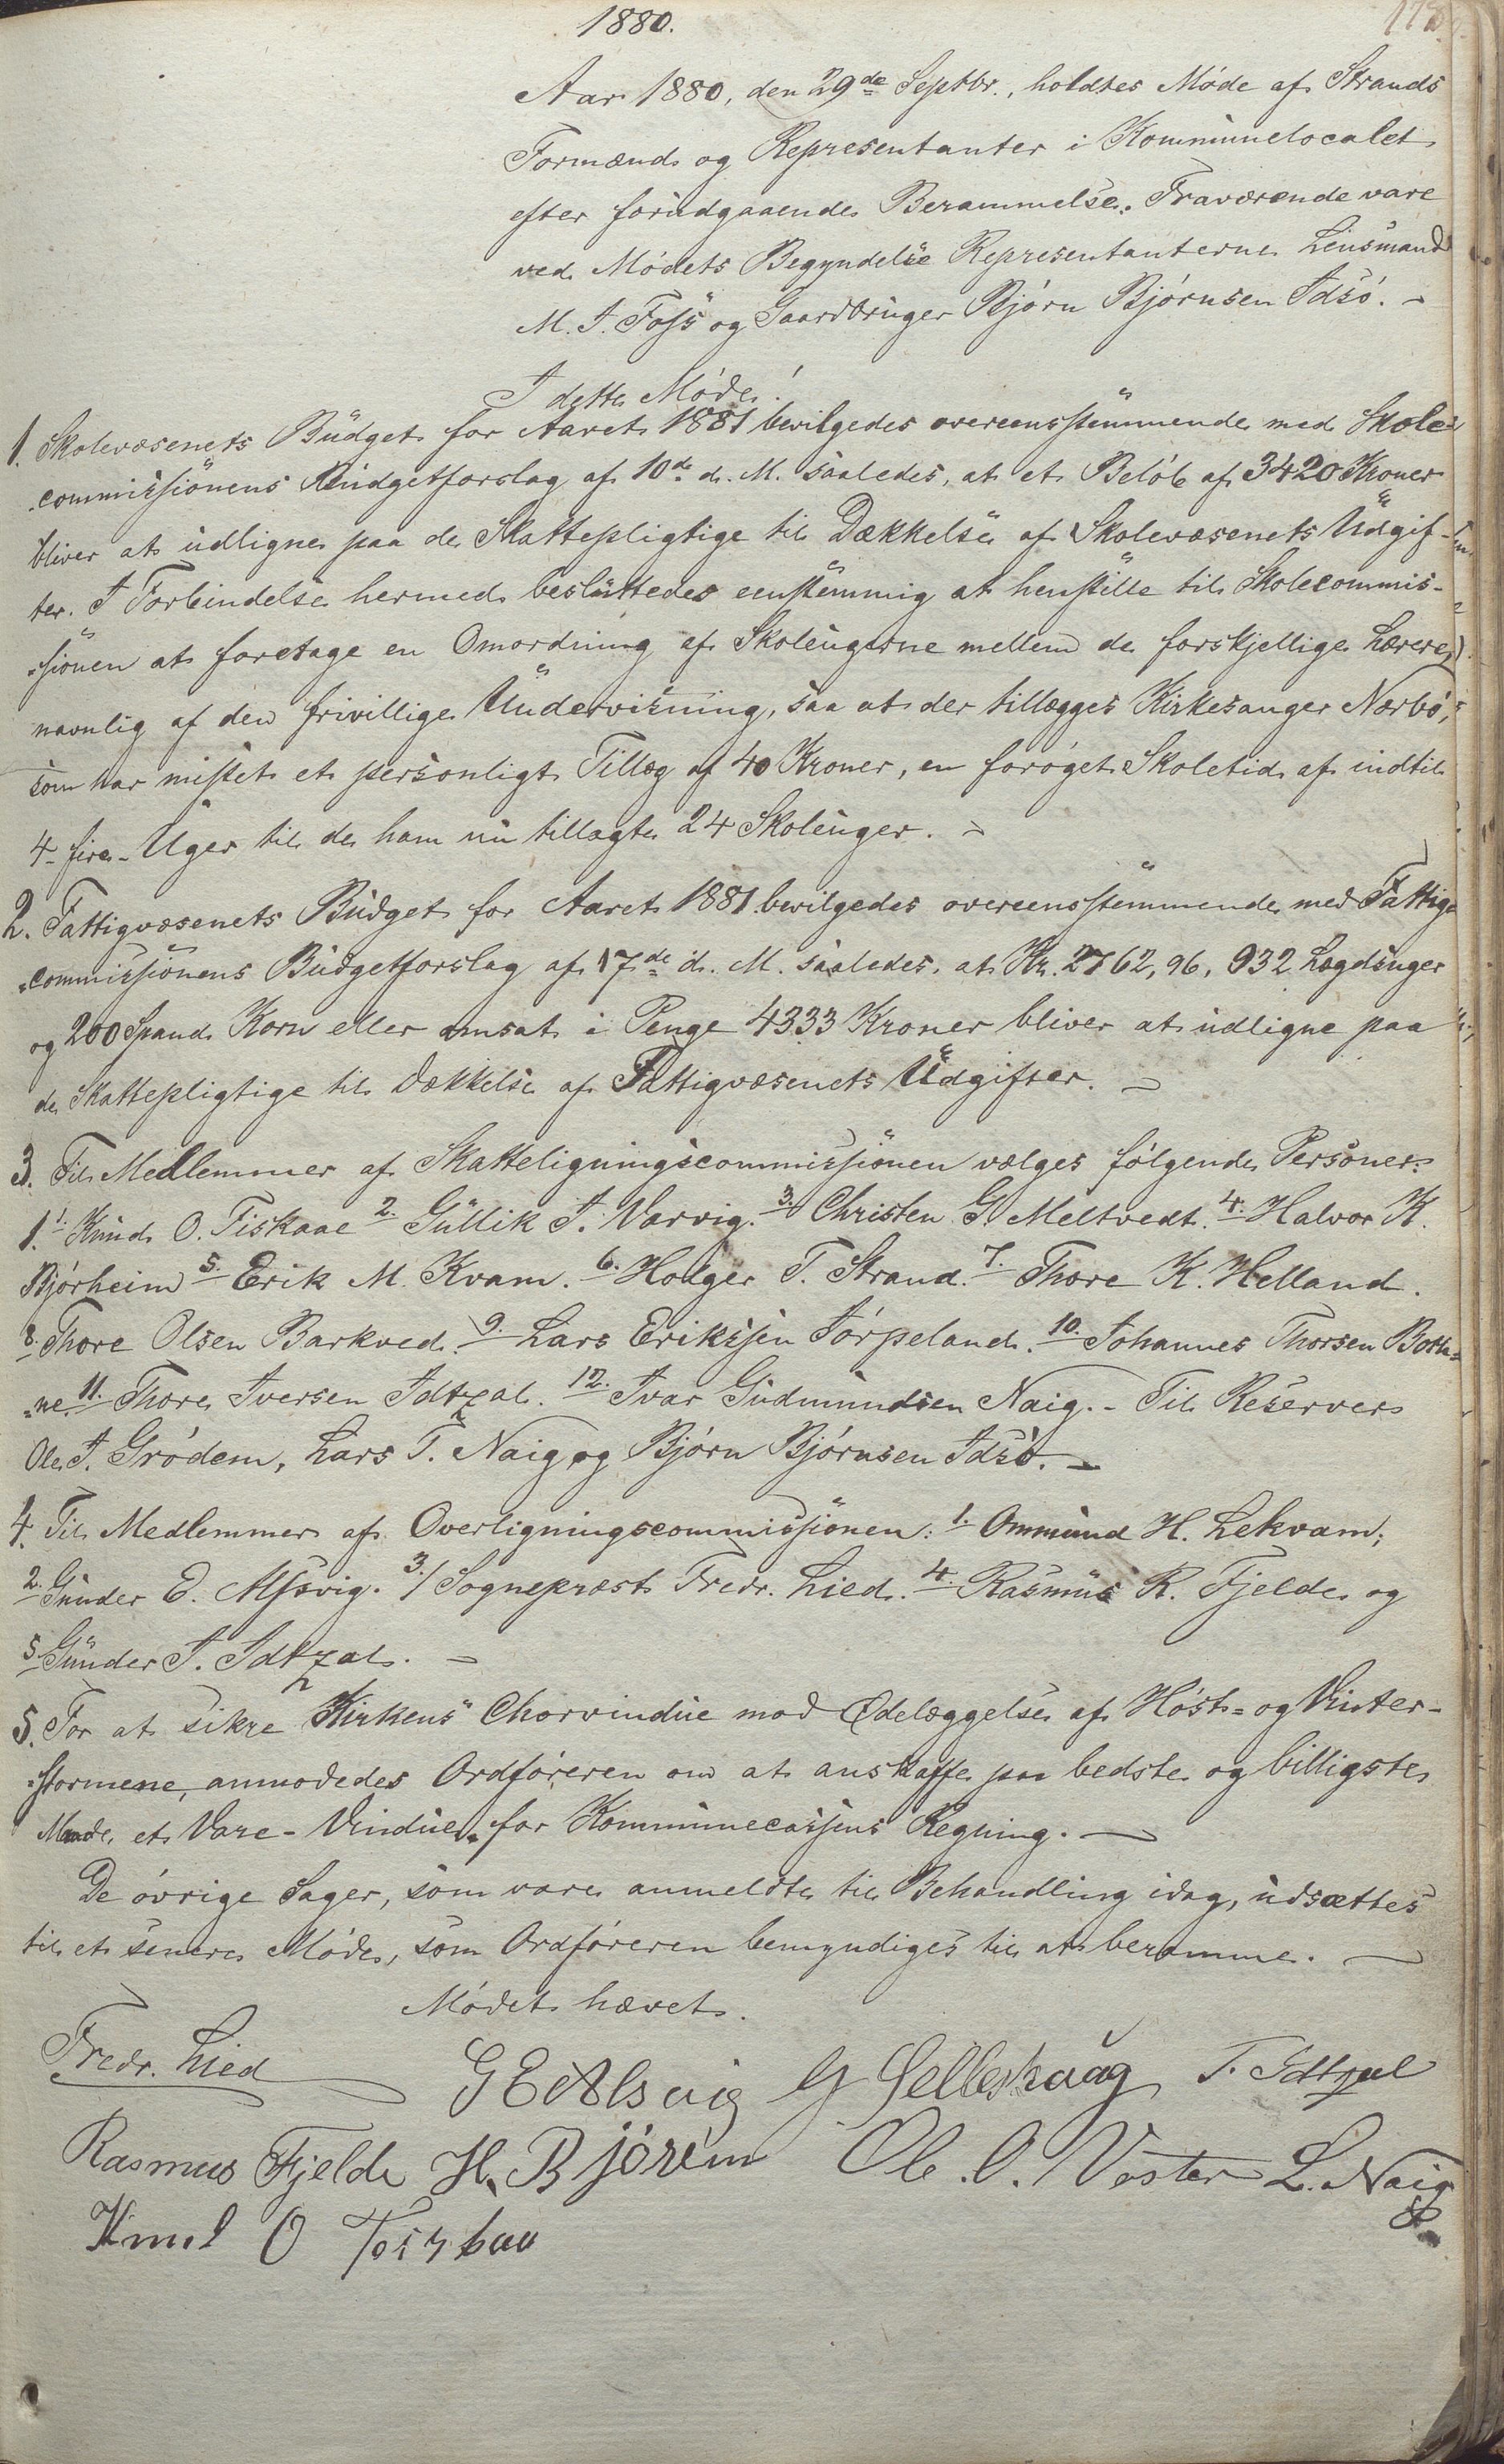 1880.
Aar 1880, den 29de Septbr., holdtes Møde af Strands
Formænd og Representanter i Kommunelocalet
efter forudgaaende Berammelse. Fraværende vare
ved Mødets Begyndelse Representanterne Lensmand
M. T. Foss og Gaardbruger Bjørn Bjørnsen Idsø. -
I dette Møde!
1. Skolevæsenets Budget for Aaret 1881 bevilgedes overeensstemmende med Skole-
-commissionens Budgetforslag af 10de d. M. saaledes, at et Beløb af 3420 Kroner
bliver at udligne paa de Skattepligtige til Dækkelse af Skolevæsenets Udgif-
ter. I Forbindelse hermed besluttedes eenstemmig at henstille til Skolecommis-
-sionen at foretage en Omordning af Skoleugerne mellem de forskjellige Lærere,
navnlig af den frivillige Undervisning, saa at der tillægges Kirkesanger Nærbø,
som har mistet et personligt Tillæg af 40 Kroner, en forøget Skoletid af indtil
4- fire- Uger til de ham nu tillagte 24 Skoleuger. -
2. Fattigvæsenets Budget for Aaret 1881 bevilgedes overeensstemmende med Fattig-
-commissionens Budgetforslag af 17de d. M. saaledes, at Kr. 2762,96, 932 Lægdsuger
og 200 Spand Korn eller omsat i Penge 4333 Kroner bliver at udligne paa
de Skattepligtige til Dækkelse af Fattigvæsenets Udgifter. -
3. Til Medlemmer af Skatteligningscommissionen vælges følgende Personer:
1. 1. Knud O. Fiskaae 2. Gullik A. Varvig. 3. Christen G. Meltvedt. 4. Halvor K.
Bjørheim 5. Erik M. Kvam. 6. Holger T. Strand. 7. Thore K. Helland.
8. Thore Olsen Barkved. 9. Lars Erikssen Jørpeland. 10. Johannes Thorsen Both-
-ne. 11. Thore Iversen Idtzal. 12. Ivar Gudmundsen Naig. - Til Reserver
Ole A. Grødem, Lars T. Naig og Bjørn Bjørnsen Idsø. -
4. Til Medlemmer af Overligningscommissionen: 1. Ommund H. Lekvam;
2. Gunder E. Alsvig. 3./ Sognepræst Fredr. Lied. 4. Rasmus R. Fjelde og
5. Gunder I. Idtzal. -
5. For at sikre Kirkens Chorvindue mod Ødelæggelse af Høst- og Vinter-
-stormene, anmodedes Ordføreren om at anskaffe paa bedste og billigste
Maade et Vare-Vindue for Kommunecassens Regning. -
De øvrige Sager, som vare anmeldte til Behandling idag, udsættes
til et senere Møde, som Ordføreren bemyndiges til at beramme. -
Mødet hævet.
Fredr. Lied G E Alsvig G Selleskaag T. Idtzal
Rasmus Fjelde H. Bjøreim Ole. O. Voster L. Naig
Knud O